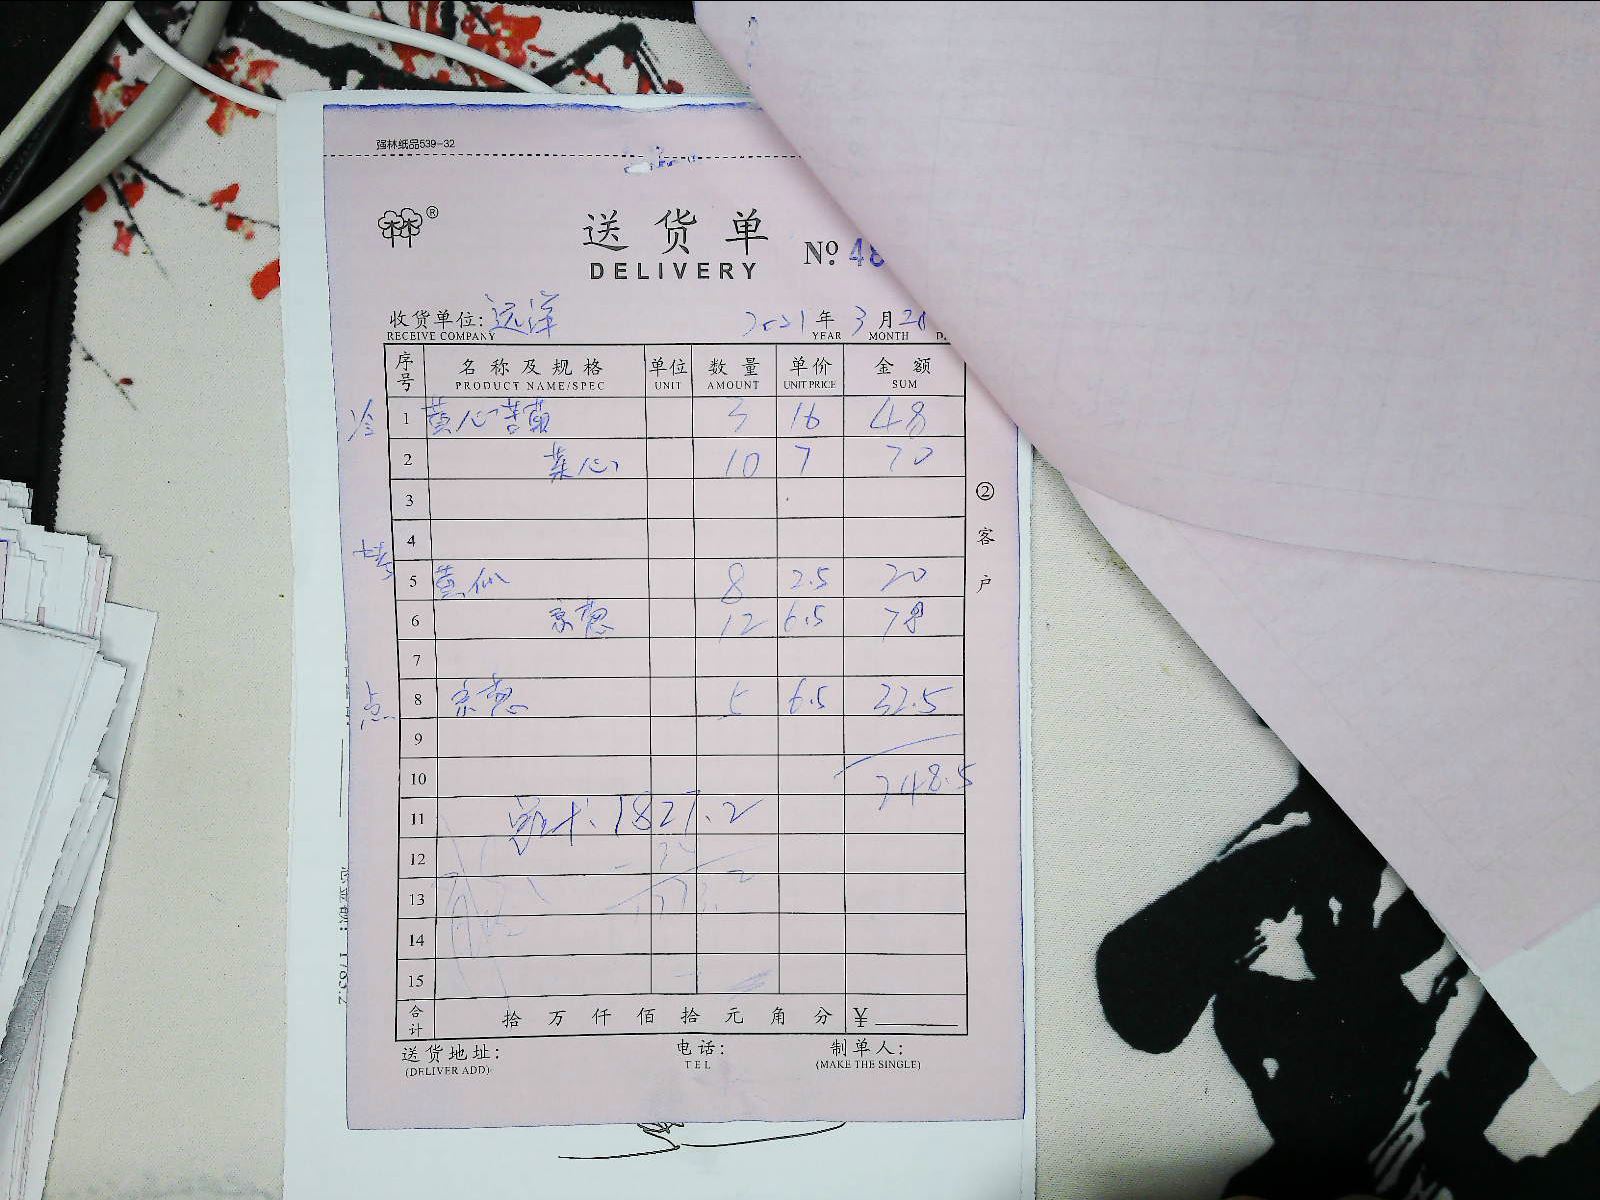 强林纸品539-32
®
送货单
DELIVERY
No. 48
收货单位: 远洋 2021年 3月 20
RECEIVE COMPANY YEAR MONTH
序号 名称及规格 单位 数量 单价 金额
PRODUCT NAME/SPEC UNIT AMOUNT UNIT PRICE SUM
冷 1 黄心苦菊 3 16 48
2 菜心 10 7 70
3
4
5 黄瓜 8 2.5 20
6 京葱 12 6.5 78
7
点 8 京葱 5 6.5 32.5
9
10 248.5
11 总计: 1821.2
12
13
14
15
合计 拾 万 仟 佰 拾 元 角 分 ¥
② 客户
送货地址: 电话: 制单人:
(DELIVER ADD) TEL (MAKE THE SINGLE)